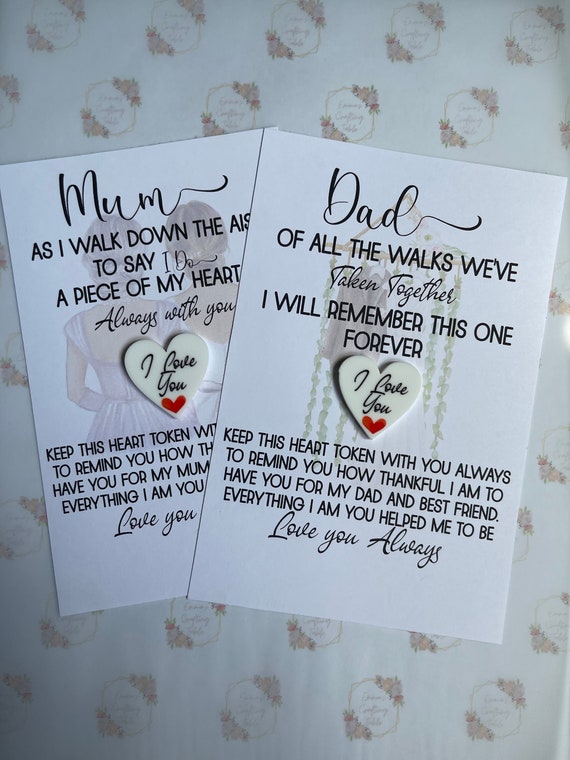 Mum
AS I WALK DOWN THE AIS
TO SAY I Do
A PIECE OF MY HEART
Always with you
I Love
You
KEEP THIS HEART TOKEN WIT
TO REMIND YOU HOW THA
HAVE YOU FOR MY MUM
EVERYTHING I AM YOU
Love you
Dad
OF ALL THE WALKS WE'VE
Taken Together
I WILL REMEMBER THIS ONE
FOREVER
I Love
You
KEEP THIS HEART TOKEN WITH YOU ALWAYS
TO REMIND YOU HOW THANKFUL I AM TO
HAVE YOU FOR MY DAD AND BEST FRIEND.
EVERYTHING I AM YOU HELPED ME TO BE
Love you Always
Emma's
Crafting
Table